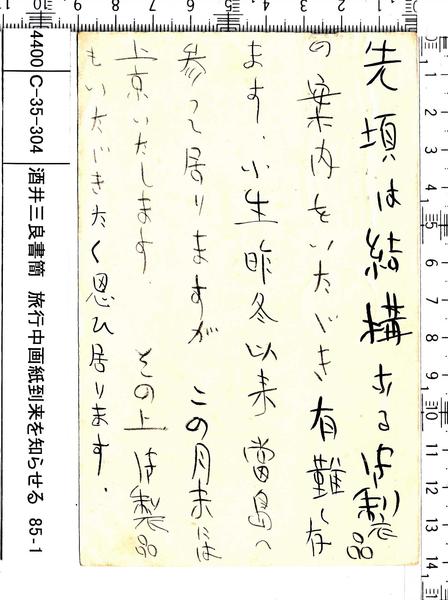 先頃は結構なる御製品
の案内をいたゞき有難く存
ます．小生昨冬以来當島へ
参って居りますが この月末には
上京いたします． その上御製品
もいたゞきたく思ひ居ります．
4400 C-35-304 酒井三良書簡 旅行中画紙到来を知らせる 85-1